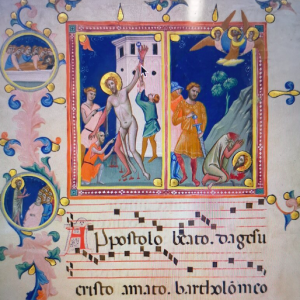 Apostolo beato. da gesu
cristo amato. bartholomeo